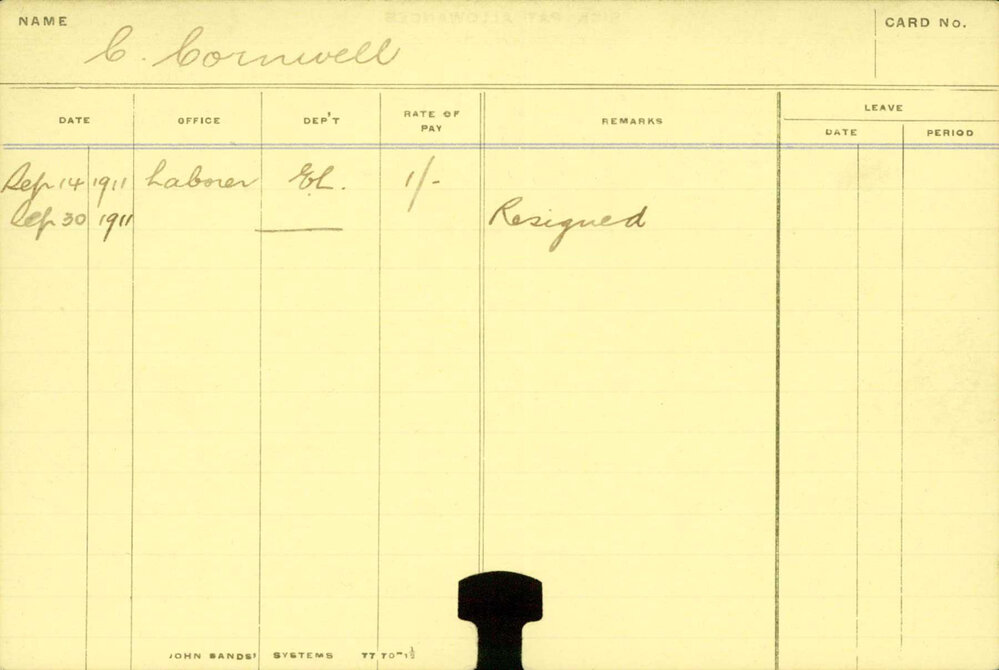 NAME
C. Cornwell
CARD No.
DATE OFFICE DEP'T RATE OF PAY REMARKS LEAVE
DATE PERIOD
Sep 14 1911 Laborer E.L. 1/-
Sep 30 1911 Resigned
JOHN SANDS' SYSTEMS